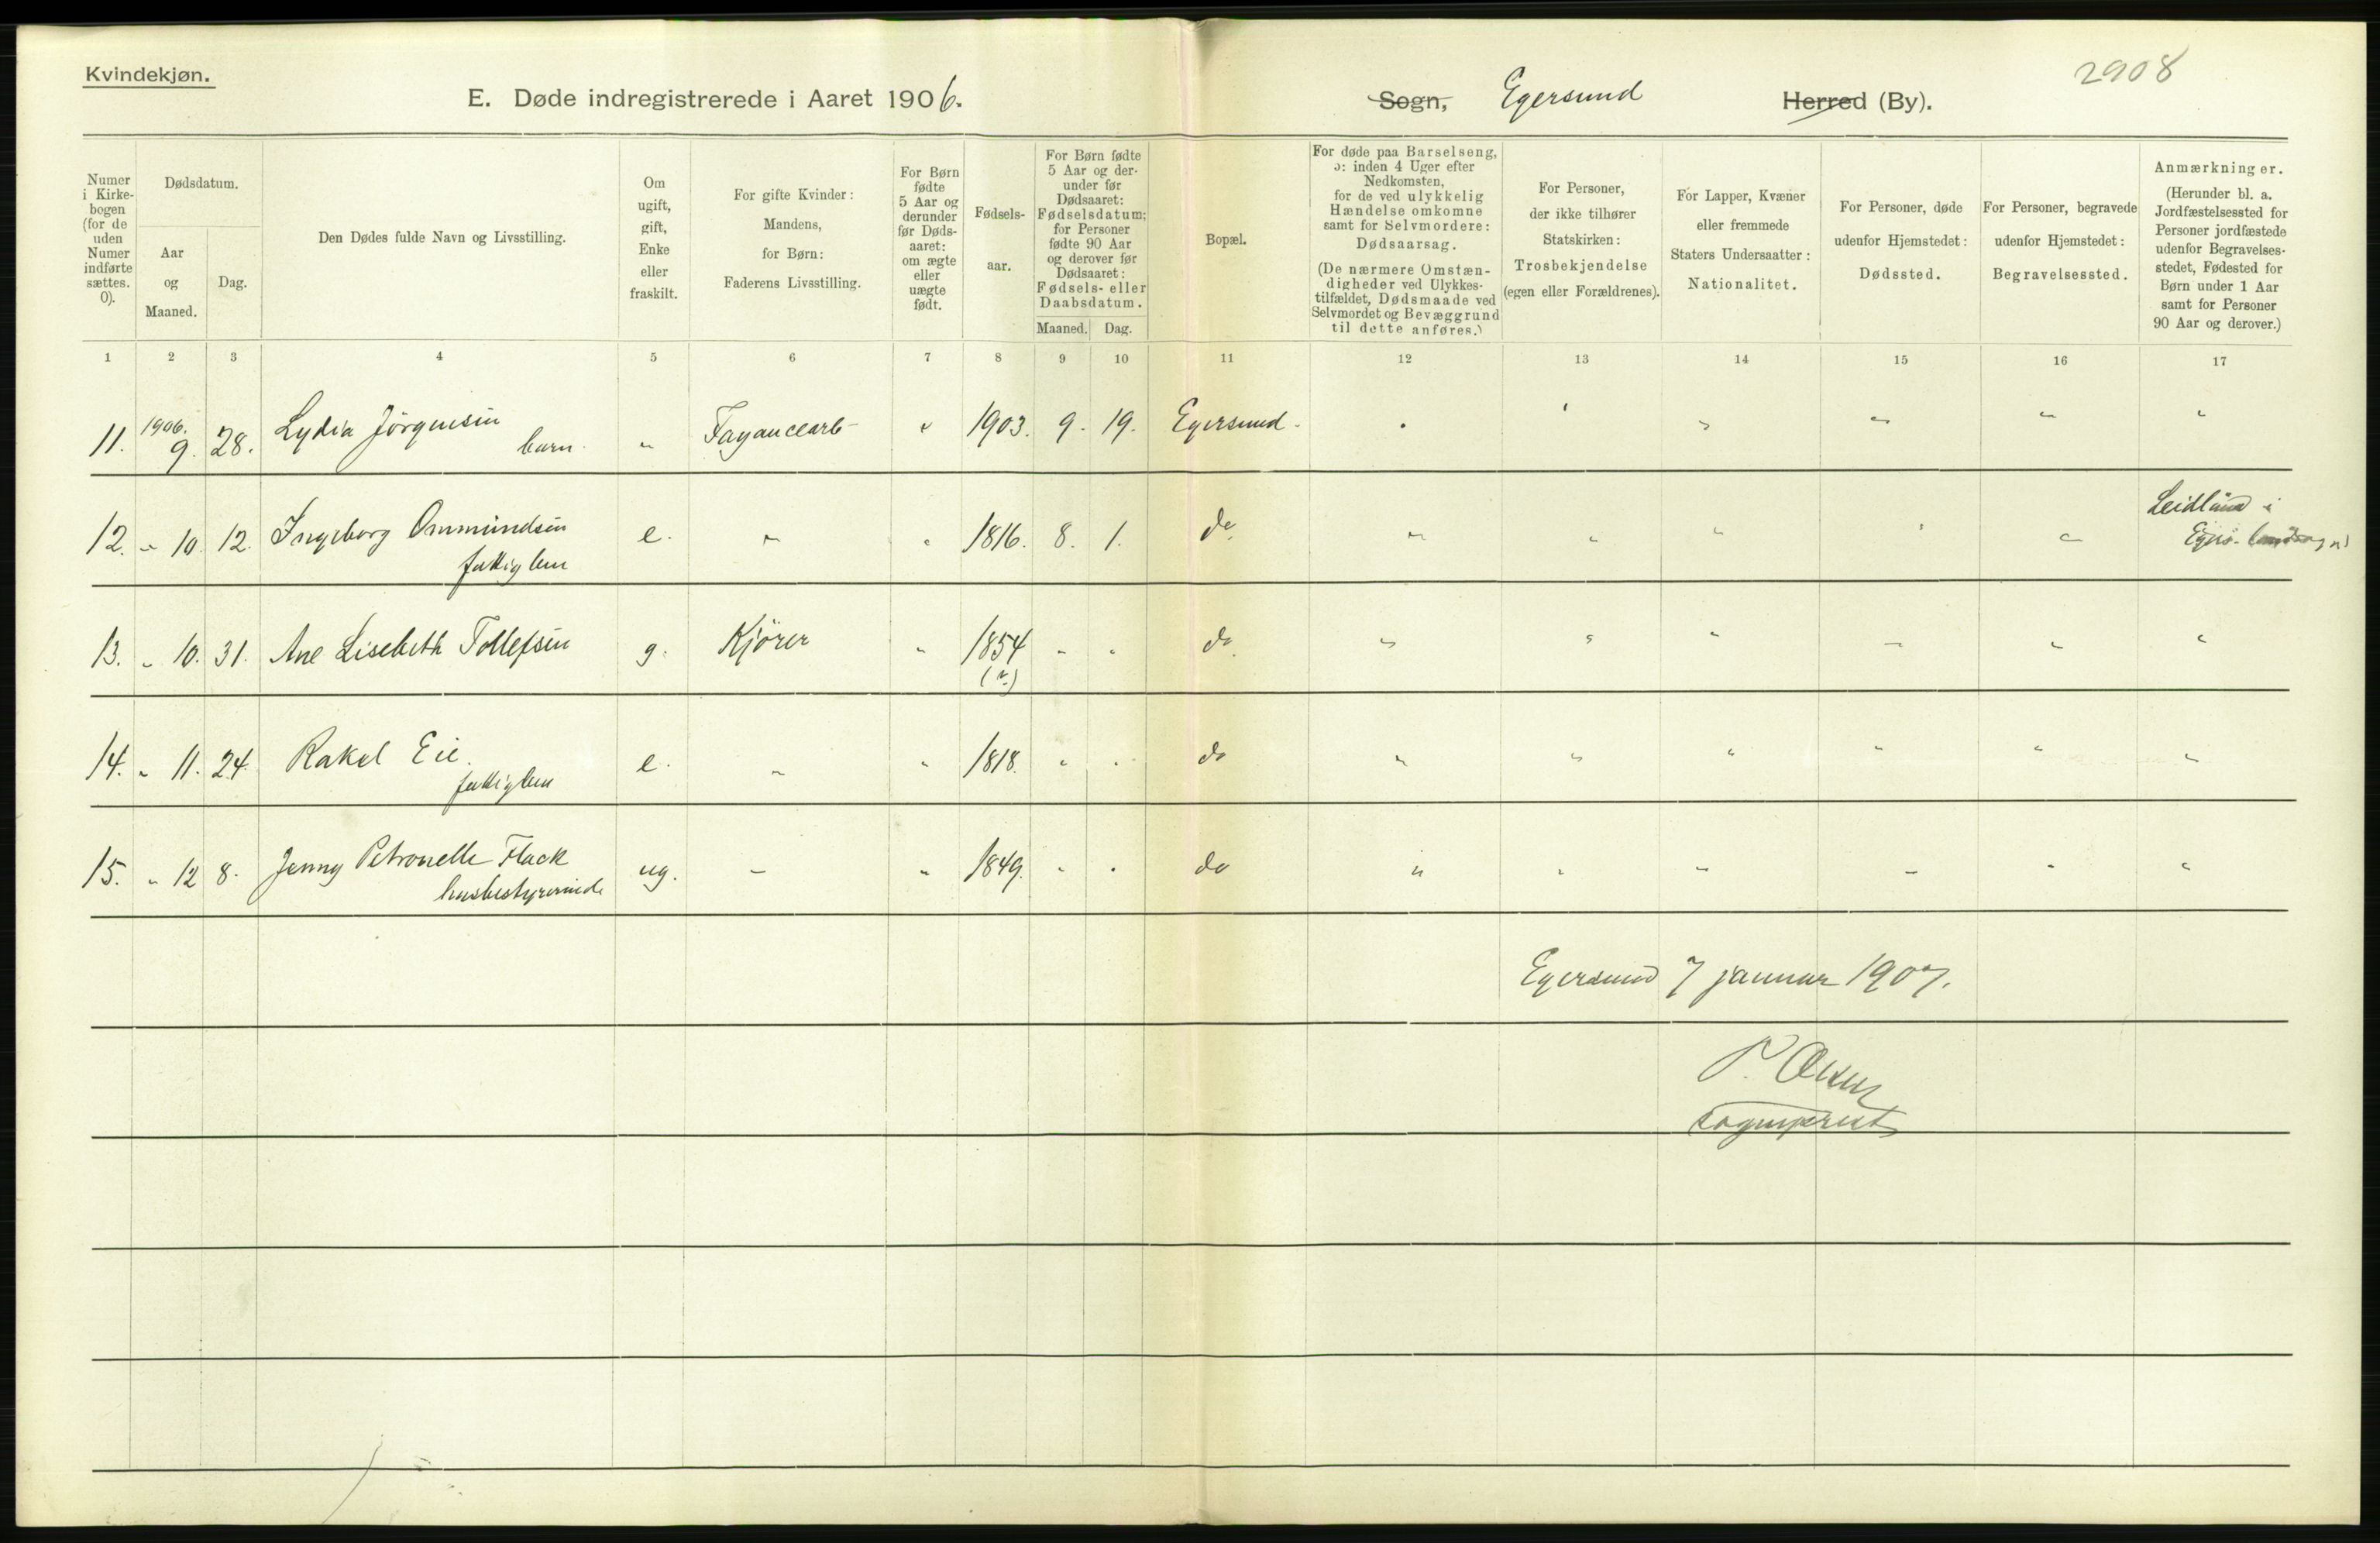 Kvindekjøn.
2908
E. Døde indregistrerede i Aaret 1906.
Sogn, Egersund Herred (By).
Numer i Kirke-bogen (for de uden Numer indførte sættes. 0).
Dødsdatum.
Aar og Maaned.
Dag.
Den Dødes fulde Navn og Livsstilling.
Om ugift, gift, Enke eller fraskilt.
For gifte Kvinder: Mandens, for Børn: Faderens Livsstilling.
For Børn fødte 5 Aar og derunder før Døds-aaret: om ægte eller uægte født.
Fødsels-aar.
For Børn fødte 5 Aar og der-under før Dødsaaret: Fødselsdatum; for Personer fødte 90 Aar og derover før Dødsaaret: Fødsels- eller Daabsdatum.
Maaned. Dag.
Bopæl.
For døde paa Barselseng, ɔ: inden 4 Uger efter Nedkomsten, for de ved ulykkelig Hændelse omkomne samt for Selvmordere: Dødsaarsag.
(De nærmere Omstæn-digheder ved Ulykkes-tilfældet, Dødsmaade ved Selvmordet og Bevæggrund til dette anføres.)
For Personer, der ikke tilhører Statskirken: Trosbekjendelse (egen eller Forældrenes).
For Lapper, Kvæner eller fremmede Staters Undersaatter: Nationalitet.
For Personer, døde udenfor Hjemstedet: Dødssted.
For Personer, begravede udenfor Hjemstedet: Begravelsessted.
Anmærkninger.
(Herunder bl. a. Jordfæstelsessted for Personer jordfæstede udenfor Begravelses-stedet, Fødested for Børn under 1 Aar samt for Personer 90 Aar og derover.)
1 2 3 4 5 6 7 8 9 10 11 12 13 14 15 16 17
11. 1906. 9. 28. Lydia Jörgensen barn " Fayancearb " 1903. 9. 19. Egersund
12. " 10. 12. Ingeborg Ommundsen fattiglem e. " " 1816. 8. 1. do. Leidland i
13. " 10. 31. Ane Lisebeth Tollefsen g. Kjörer " 1854 " " do.
14. " 11. 24. Rakel Eie. fattiglem e. " " 1818. " " do
15. " 12 8. Jenny Petronelle Flack husbestyrerinde ug. " " 1849. " " do
Egersund 7 januar 1907.
sogneprest